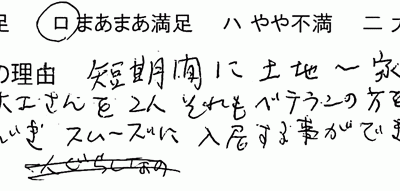 足 ロ まあまあ満足 ハ やや不満 ニ
の理由 短期間に土地〜家
大工さんを2人それもベテランの方
スムーズに入居する事がで
一人ぐらしなの